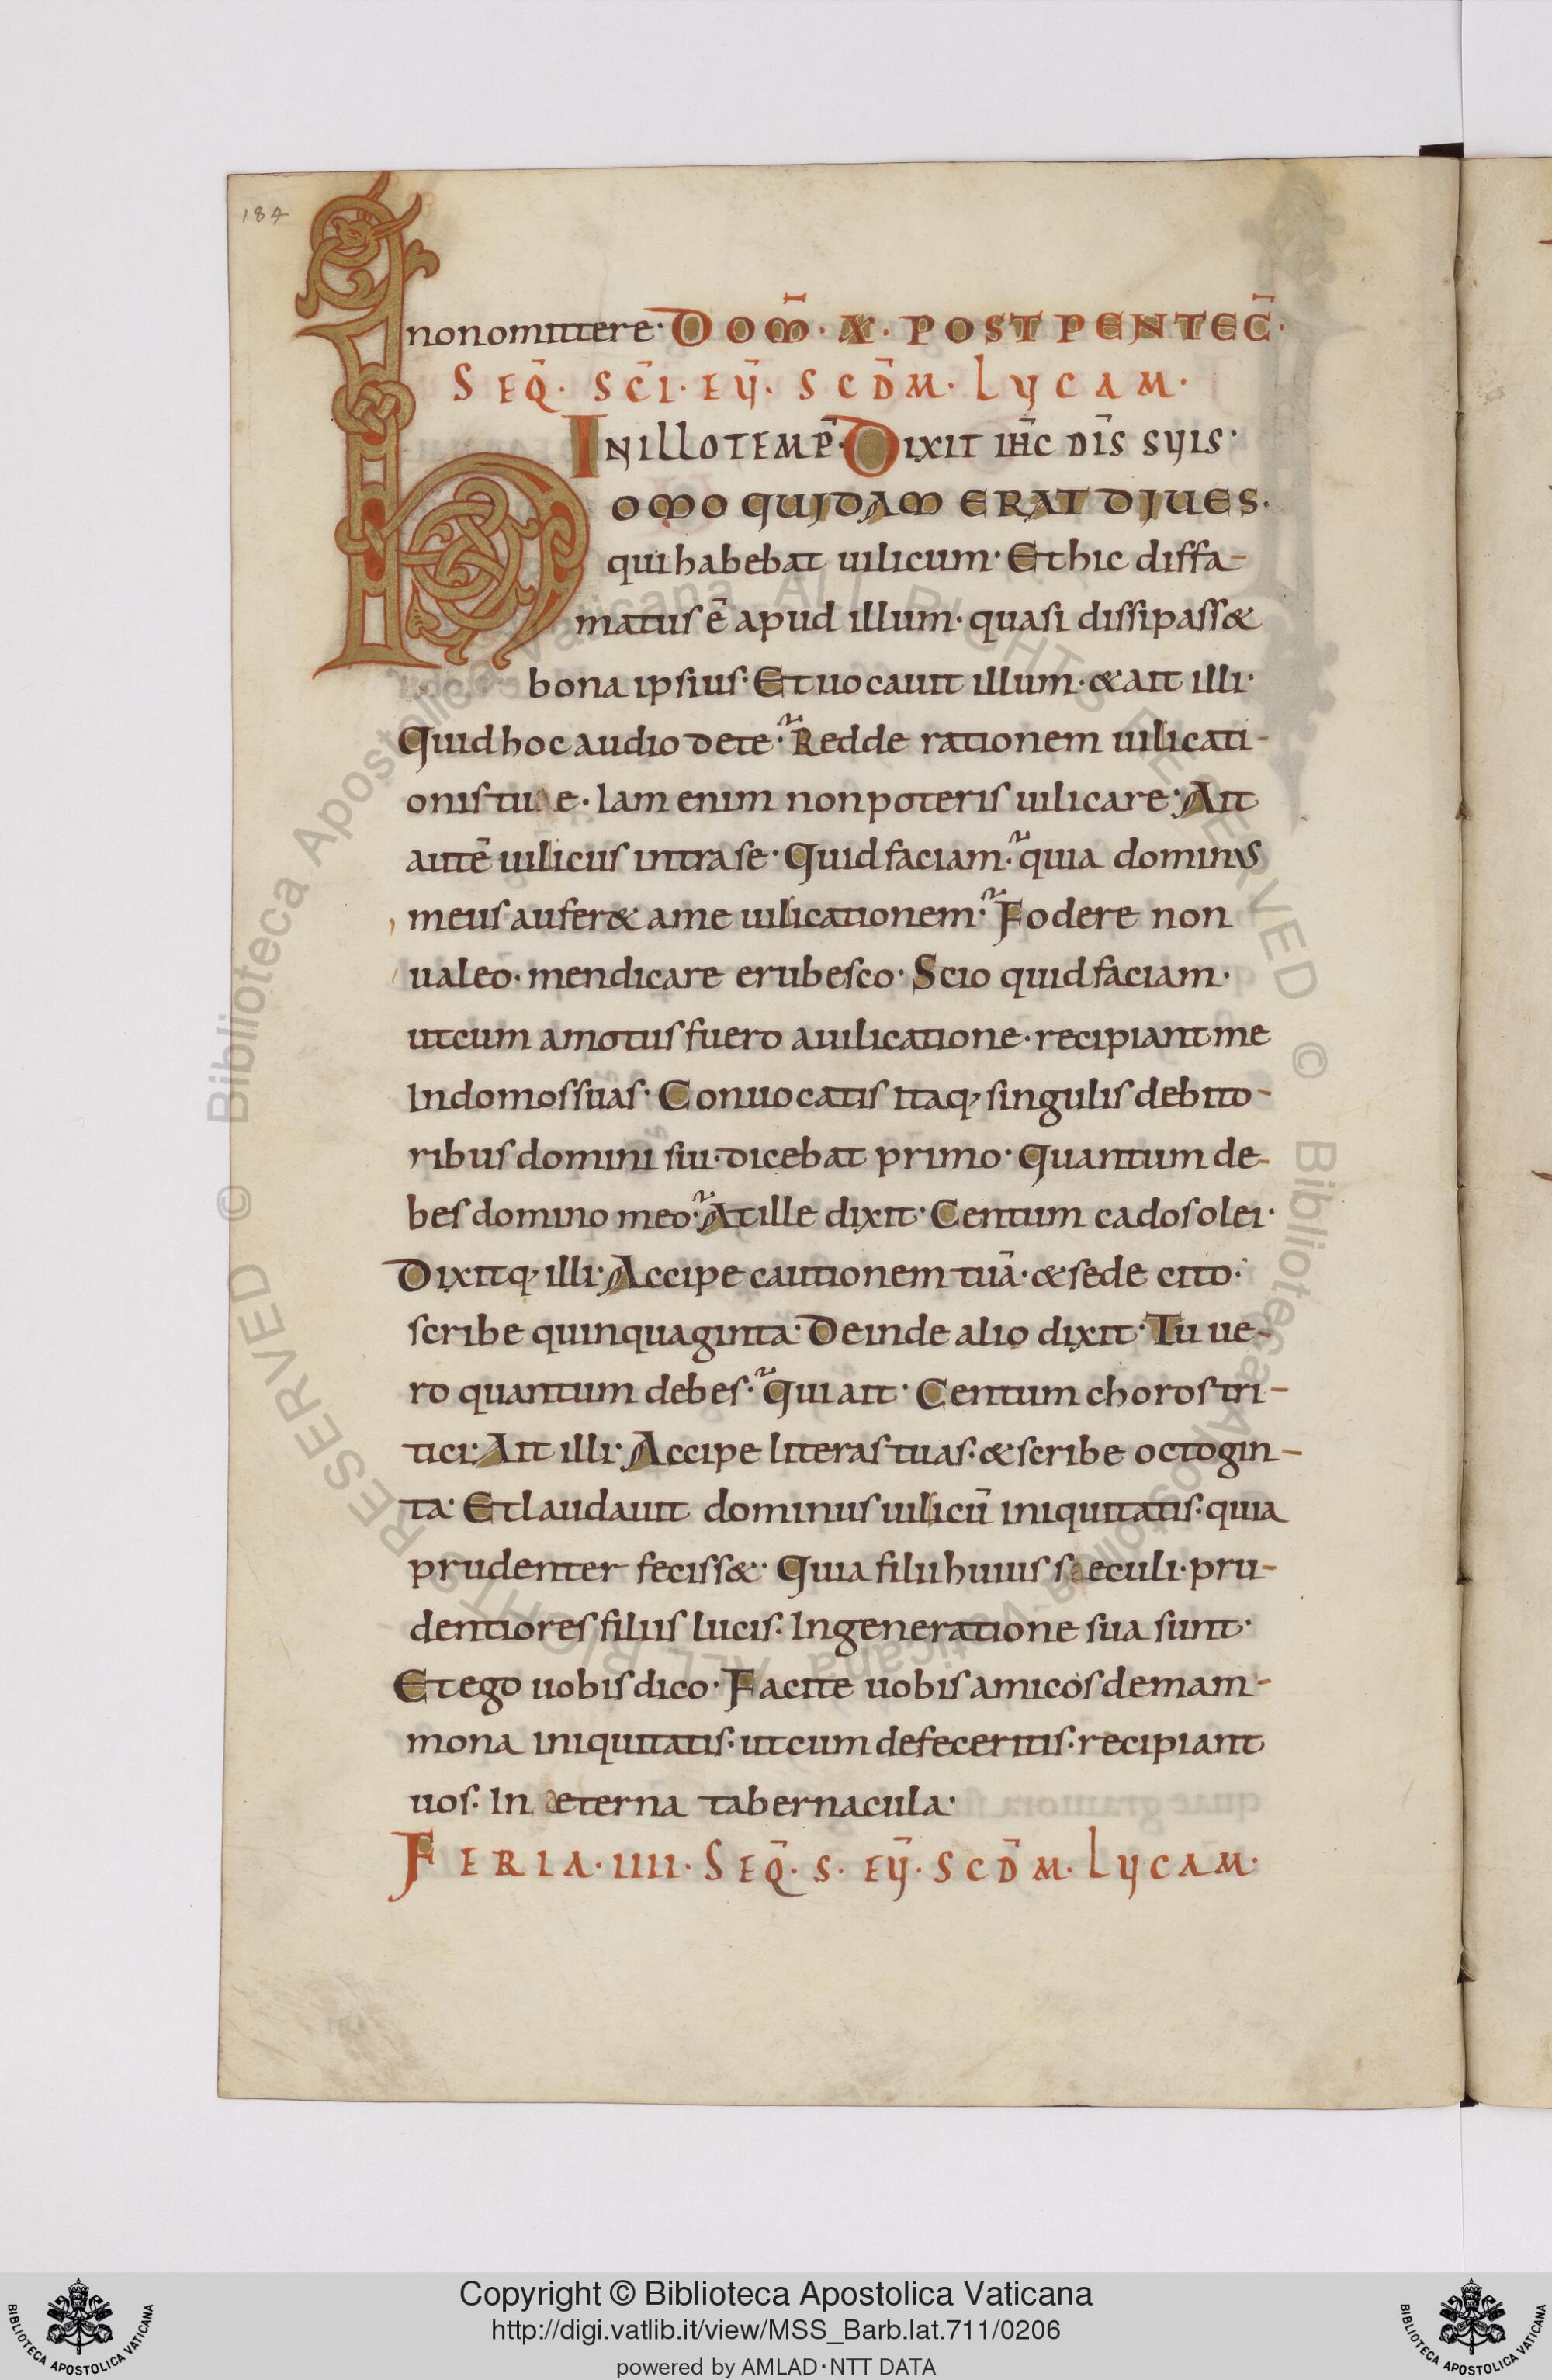 184
non omittere· DOM̄· X· POST PENTEC̄·
SEQ̄· SC̄I· EỼ· SCD̄M· LVCAM·
IN ILLO TEMP̄· DIXIT IH̄C DIS̄ SVIS·
HOMO QUIDAM ERAT DIUES·
qui habebat uilicum· Et hic diffa-
matus ē apud illum· quasi dissipass&
bona ipsius· Et uocauit illum· & ait illi·
Quid hoc audio de te·̃ Redde rationem uilicati-
onis tuae· Iam enim non poteris uilicare· Ait
autē uilicus intra se· Quid faciam·̃ quia dominus
meus aufer& a me uilicationem·̃ Fodere non
ualeo· mendicare erubesco· Scio quid faciam·
ut cum amotus fuero a uilicatione· recipiant me
In domos suas· Conuocatis itaq; singulis debito-
ribus domini sui· dicebat primo· Quantum de-
bes domino meo·̃ At ille dixit· Centum cados olei·
Dixitq; illi· Accipe cautionem tuā· & sede cito·
scribe quinquaginta· Deinde alio dixit· Tu ue-
ro quantum debes·̃ Qui ait· Centum choros tri-
tici· Ait illi· Accipe literas tuas· & scribe octogin-
ta· Et laudauit dominus uilicū iniquitatis· quia
prudenter feciss&· Quia filii huius saeculi· pru-
dentiores filiis lucis· In generatione sua sunt·
Et ego uobis dico· Facite uobis amicos de mam-
mona iniquitatis· ut cum defeceritis· recipiant
uos· In aeterna tabernacula·
FERIA· IIII· SEQ̄· S· EỼ· SCD̄M· LVCAM·
© Biblioteca Apostolica Vaticana ALL RIGHTS RESERVED
© Biblioteca Apostolica Vaticana ALL RIGHTS RESERVED
Copyright © Biblioteca Apostolica Vaticana
http://digi.vatlib.it/view/MSS_Barb.lat.711/0206
powered by AMLAD·NTT DATA
BIBLIOTECA APOSTOLICA VATICANA
BIBLIOTECA APOSTOLICA VATICANA